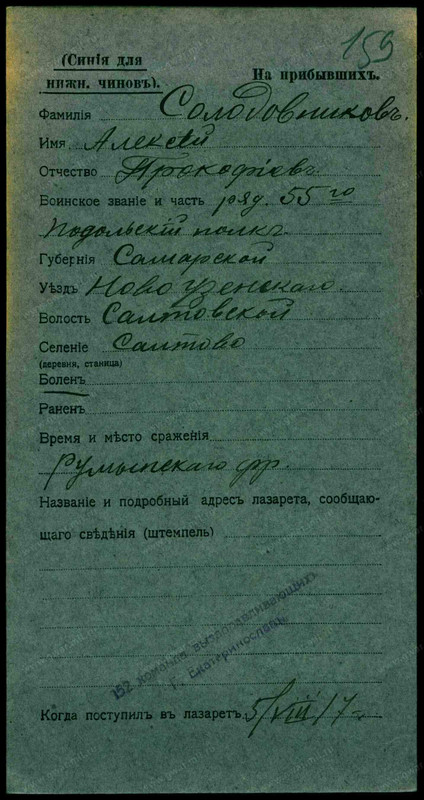 159
(Синія для
нижн. чиновъ).
На прибывшихъ.
Фамилія Солодовниковъ.
Имя Алексѣй
Отчество Прокофіевъ
Воинское званіе и часть ряд. 55го
Подольскій полкъ
Губернія Самарской
Уѣздъ Новоузенскаго
Волость Салтовской
Селеніе Салтово
(деревня, станица)
Боленъ
Раненъ
Время и мѣсто сраженія
Румынскаго фр.
Названіе и подробный адресъ лазарета, сообщаю-
щаго свѣдѣнія (штемпель)
152 команда выздоравливающихъ
г. Екатеринославъ
Когда поступилъ въ лазаретъ 5/VIII 17